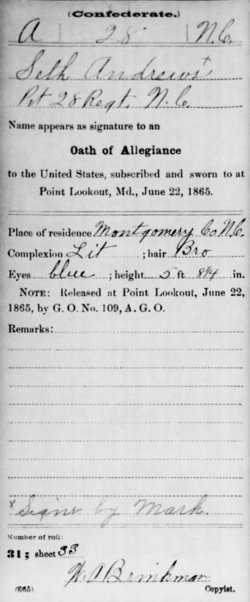 (Confederate.)
A 28 N.C.
Seth Andrews †
Pvt 28 Regt. N.C.
Name appears as signature to an
Oath of Allegiance
to the United States, subscribed and sworn to at
Point Lookout, Md., June 22, 1865.
Place of residence Montgomery Co N.C.
Complexion Lit ; hair Bro
Eyes blue ; height 5 ft 8¾ in.
NOTE: Released at Point Lookout, June 22,
1865, by G. O. No. 109, A. G. O.
Remarks:
Signs by Mark.
Number of roll:
31; sheet 33
(665) Copyist.